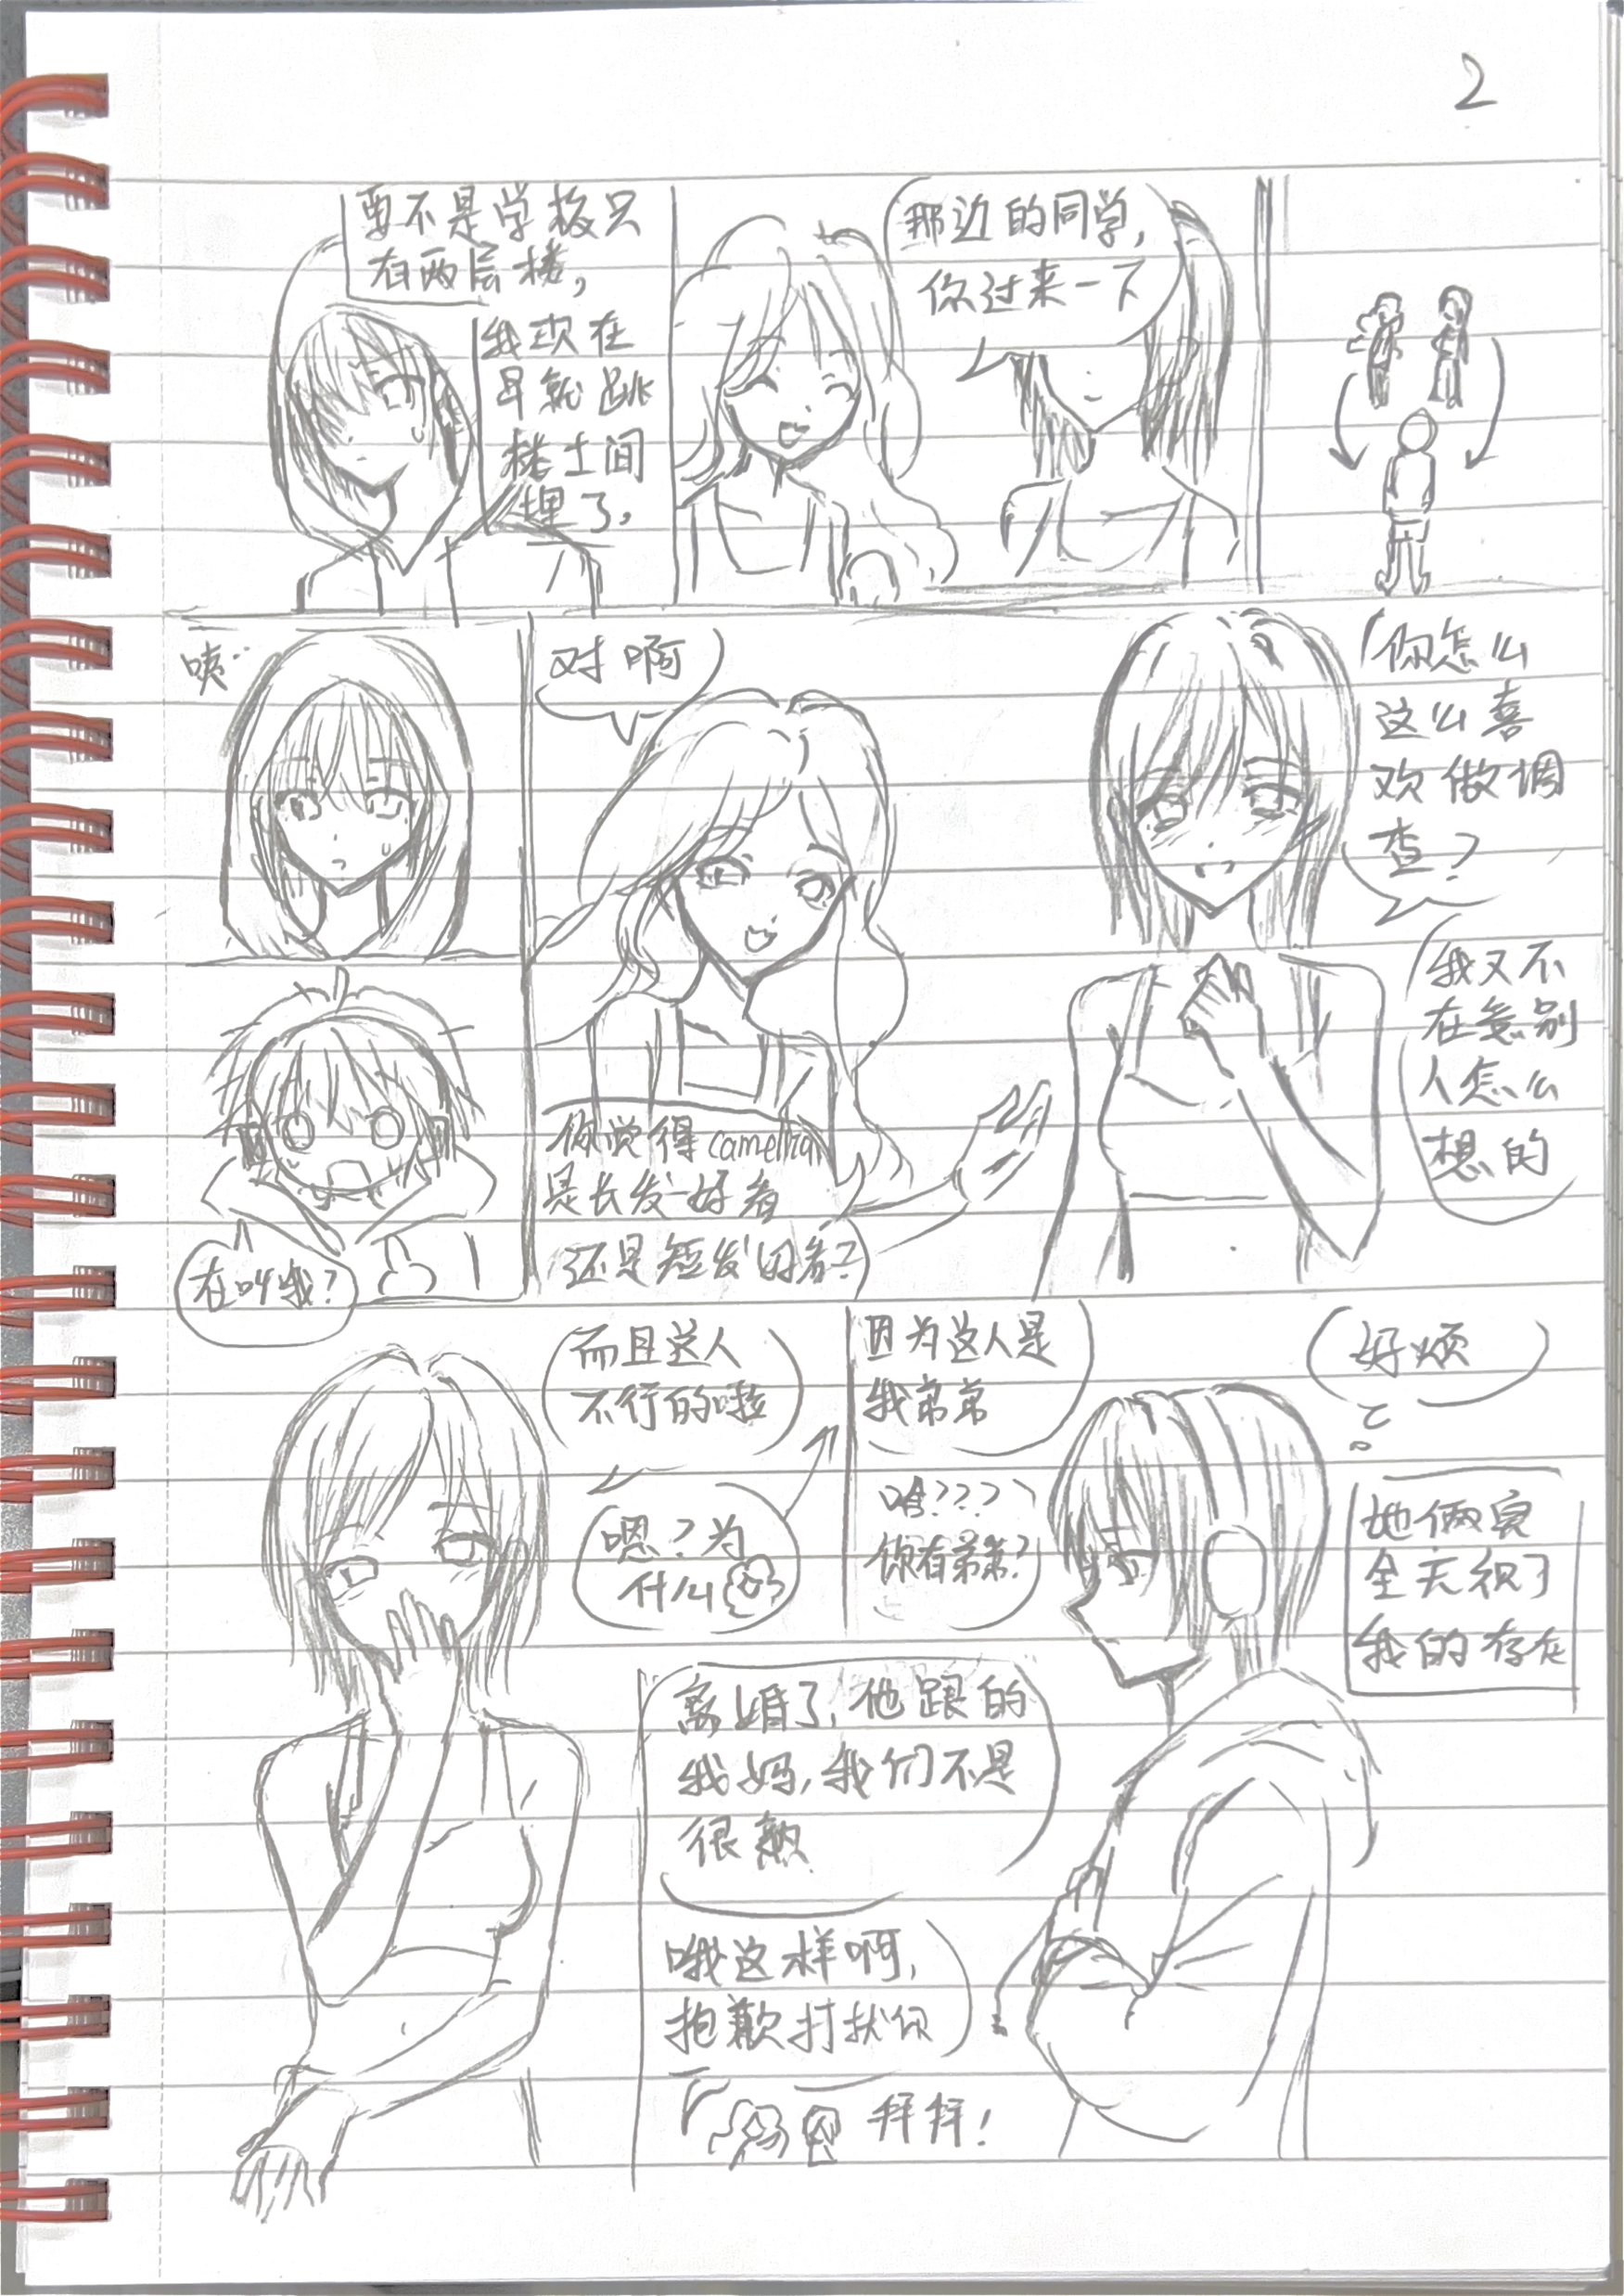 2
要不是学校只
有两层楼，
我现在
早就跳
楼土间
埋了，
那边的同学，
你过来一下
咦…
在叫我？
对啊
你觉得camellia
是长发好者
还是短发好者？
你怎么
这么喜
欢做调
查？
我又不
在意别
人怎么
想的
而且这人
不行的啦
嗯？为
什么
因为这人是
我弟弟
啥？？？
你有弟弟？
好烦
她俩完
全无视了
我的存在
离婚了，他跟的
我妈，我们不是
很熟
哦这样啊，
抱歉打扰你
拜拜！